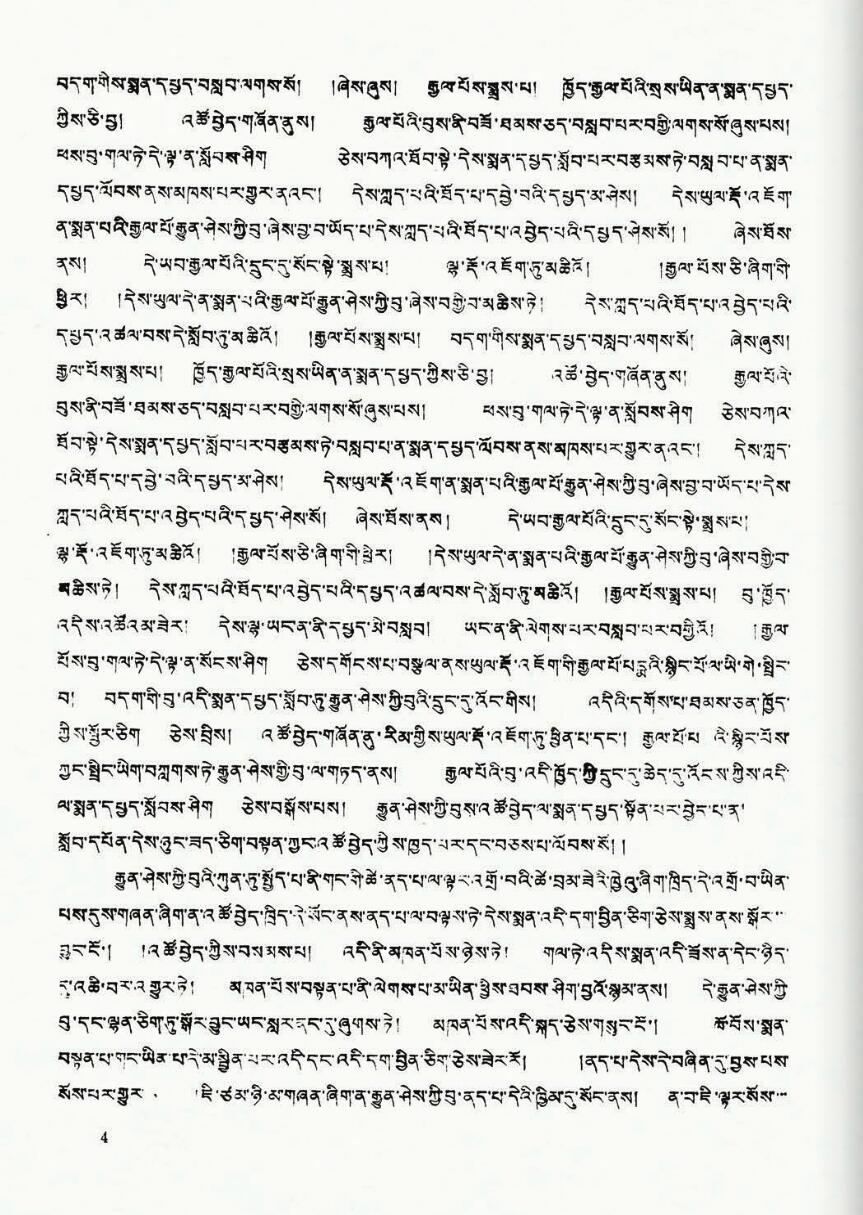 བདག་གིས་སྨན་དཔྱད་བསླབ་ལགས་སོ། །ཞེས་ཞུས། རྒྱལ་པོས་སྨྲས་པ། ཁྱོད་རྒྱལ་པོའི་སྲས་ཡིན་ན་སྨན་དཔྱད་
ཀྱིས་ཅི་བྱ། འཚོ་བྱེད་གཞོན་ནུས། རྒྱལ་པོའི་བུས་ནི་བཟོ་ཐམས་ཅད་བསླབ་པར་བགྱི་ལགས་སོ་ཞུས་པས།
ཕས་བུ་གལ་ཏེ་དེ་ལྟ་ན་སློབས་ཤིག ཅེས་བཀའ་ཐོབ་སྟེ་དེས་སྨན་དཔྱད་སློབ་པར་བརྩམས་ཏེ་བསླབ་པ་ན་སྨན་
དཔྱད་ལོབས་ནས་མཁས་པར་གྱུར་ནའང་། དེས་ཀླད་པའི་ཐོད་པ་དབྱེ་བའི་དཔྱད་མ་ཤེས། དེས་ཡུལ་རྡོ་འཇོག་
ན་སྨན་པའི་རྒྱལ་པོ་རྒྱུན་ཤེས་ཀྱི་བུ་ཞེས་བྱ་བ་ཡོད་པ་དེས་ཀླད་པའི་ཐོད་པ་འབྱེད་པའི་དཔྱད་ཤེས་སོ།། ཞེས་ཐོས་
ནས། དེ་ཡབ་རྒྱལ་པོའི་དྲུང་དུ་སོང་སྟེ་སྨྲས་པ། ལྷ་རྡོ་འཇོག་ཏུ་མཆིའོ། །རྒྱལ་པོས་ཅི་ཞིག་གི་
ཕྱིར། །དེས་ཡུལ་དེ་ན་སྨན་པའི་རྒྱལ་པོ་རྒྱུན་ཤེས་ཀྱི་བུ་ཞེས་བགྱི་བ་མཆིས་ཏེ། དེས་ཀླད་པའི་ཐོད་པ་འབྱེད་པའི་
དཔྱད་འཚལ་བས་དེ་སློབ་ཏུ་མཆིའོ། །རྒྱལ་པོས་སྨྲས་པ། བདག་གིས་སྨན་དཔྱད་བསླབ་ལགས་སོ། ཞེས་ཞུས།
རྒྱལ་པོས་སྨྲས་པ། ཁྱོད་རྒྱལ་པོའི་སྲས་ཡིན་ན་སྨན་དཔྱད་ཀྱིས་ཅི་བྱ། འཚོ་བྱེད་གཞོན་ནུས། རྒྱལ་པོའི་
བུས་ནི་བཟོ་ཐམས་ཅད་བསླབ་པར་བགྱི་ལགས་སོ་ཞུས་པས། ཕས་བུ་གལ་ཏེ་དེ་ལྟ་ན་སློབས་ཤིག ཅེས་བཀའ་
ཐོབ་སྟེ་དེས་སྨན་དཔྱད་སློབ་པར་བརྩམས་ཏེ་བསླབ་པ་ན་སྨན་དཔྱད་ལོབས་ནས་མཁས་པར་གྱུར་ནའང་། དེས་ཀླད་
པའི་ཐོད་པ་དབྱེ་བའི་དཔྱད་མ་ཤེས། དེས་ཡུལ་རྡོ་འཇོག་ན་སྨན་པའི་རྒྱལ་པོ་རྒྱུན་ཤེས་ཀྱི་བུ་ཞེས་བྱ་བ་ཡོད་པ་དེས
ཀླད་པའི་ཐོད་པ་འབྱེད་པའི་དཔྱད་ཤེས་སོ། ཞེས་ཐོས་ནས། དེ་ཡབ་རྒྱལ་པོའི་དྲུང་དུ་སོང་སྟེ་སྨྲས་པ།
ལྷ་རྡོ་འཇོག་ཏུ་མཆིའོ། །རྒྱལ་པོས་ཅི་ཞིག་གི་ཕྱིར། །དེས་ཡུལ་དེ་ན་སྨན་པའི་རྒྱལ་པོ་རྒྱུན་ཤེས་ཀྱི་བུ་ཞེས་བགྱི་བ་
མཆིས་ཏེ། དེས་ཀླད་པའི་ཐོད་པ་འབྱེད་པའི་དཔྱད་འཚལ་བས་དེ་སློབ་ཏུ་མཆིའོ། །རྒྱལ་པོས་སྨྲས་པ། བུ་ཁྱོད་
འདིས་འཚོའམ་ཟེར། དེས་ལྷ་ཡང་ན་ནི་དཔྱད་མི་བསླབ། ཡང་ན་ནི་ལེགས་པར་བསླབ་པར་བགྱིའོ། །རྒྱལ་
པོས་བུ་གལ་ཏེ་དེ་ལྟ་ན་སོངས་ཤིག ཅེས་དགོངས་པ་བསྩལ་ནས་ཡུལ་རྡོ་འཇོག་གི་རྒྱལ་པོ་པདྨའི་སྙིང་པོ་ལ་ཡི་གེ་སྤྲིང་
བ། བདག་གི་བུ་འདི་སྨན་དཔྱད་སློབ་ཏུ་རྒྱུན་ཤེས་ཀྱི་བུའི་དྲུང་དུ་འོང་གིས། འདིའི་དགོས་པ་ཐམས་ཅན་ཁྱོད་
ཀྱིས་སྦྱོར་ཅིག ཅེས་བྲིས། འཚོ་བྱེད་གཞོན་ནུ་རིམ་གྱིས་ཡུལ་རྡོ་འཇོག་ཏུ་ཕྱིན་པ་དང་། རྒྱལ་པོ་པ འི་སྙིང་པོས
ཀྱང་སྤྲིང་ཡིག་བཀླགས་ཏེ་རྒྱུན་ཤེས་ཀྱི་བུ་ལ་གཏད་ནས། རྒྱལ་པོའི་བུ་འདི་ཁྱོད་ཀྱི་དྲུང་དུ་ཆེད་དུ་འོངས་ཀྱིས་འདི་
ལ་སྨན་དཔྱད་སློབས་ཤིག ཅེས་བསྒོས་པས། རྒྱུན་ཤེས་ཀྱི་བུས་འཚོ་བྱེད་ལ་སྨན་དཔྱད་སྟོན་པར་བྱེད་པ་ན་
སློབ་དཔོན་དེས་ཉུང་ཟད་ཅིག་བསྟན་ཀྱང་འཚོ་བྱེད་ཀྱིས་ཁྱད་པར་དང་བཅས་པ་ལོབས་སོ།།
རྒྱུན་ཤེས་ཀྱི་བུའི་ཀུན་ཏུ་སྤྱོད་པ་ནི་གང་གི་ཚེ་ནད་པ་ལ་ལྟར་འགྲོ་བའི་ཚེ་བྲམ་ཟེའི་ཁྱེའུ་ཞིག་ཁྲིད་དེ་འགྲོ་བ་ཡིན་
པས་དུས་གཞན་ཞིག་ན་འཚོ་བྱེད་ཁྲིད་དེ་སོང་ནས་ནད་པ་ལ་བལྟས་ཏེ་དེས་སྨན་འདི་དག་བྱིན་ཅིག་ཅེས་སྨྲས་ནས་སྐོར་
བྱུང་ངོ་། །འཚོ་བྱེད་ཀྱིས་བསམས་པ། འདི་ནི་མཁན་པོས་ཉེས་ཏེ། གལ་ཏེ་འདིས་སྨན་འདི་ཟོས་ན་དེང་ཉིད་
དུ་འཆི་བར་འགྱུར་ཏེ། མཁན་པོས་བསྟན་པ་ནི་ལེགས་པ་མ་ཡིན་ཕྱིས་ཐབས་ཤིག་བྱའོ་སྙམ་ནས། དེ་རྒྱུན་ཤེས་ཀྱི་
བུ་དང་ལྷན་ཅིག་ཏུ་སྐོར་བྱུང་ཡང་སླར་ནང་དུ་ཞུགས་ཏེ། མཁན་པོས་འདི་སྐད་ཅེས་གསུང་ངོ་། ཚོ་བོས་སྨན་
བསྟན་པ་གང་ཡིན་པ་དེ་མ་སྦྱིན་པར་འདི་དང་འདི་དག་བྱིན་ཅིག་ཅེས་ཟེར་རོ། །ནད་པ་དེས་དེ་བཞིན་དུ་བྱས་པས
སོས་པར་གྱུར ཇི་ཙམ་ཉི་མ་གཞན་ཞིག་ན་རྒྱུན་ཤེས་ཀྱི་བུ་ནད་པ་དེའི་ཁྱིམ་དུ་སོང་ནས། ན་བ་ཇི་ལྟར་སོས་
4